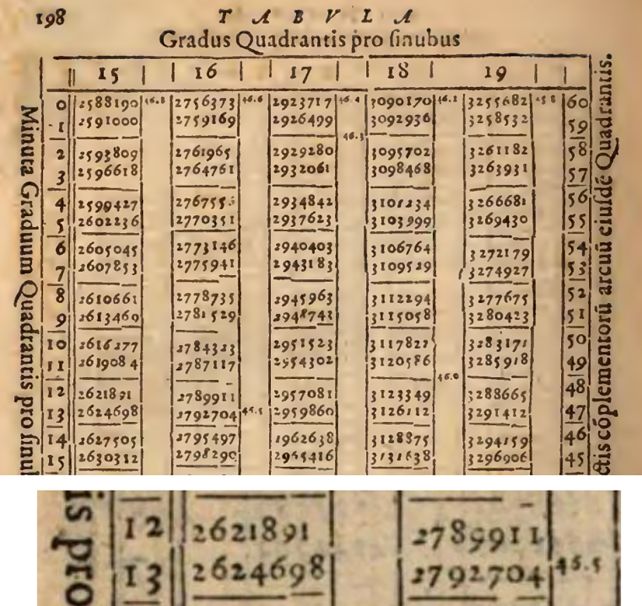 198 TABVLA
Gradus Quadrantis pro sinubus
15 16 17 18 19
0 2588190 46.8 2756373 46.6 2923717 46.4 3090170 46.1 3255682 45 8 60
1 2591000 2759169 2926499 3092936 3258532 59
46.3
2 2593809 2761965 2929280 3095702 3261182 58
3 2596618 2764761 2932061 3098468 3263931 57
4 2599427 2934842 3101234 3266681 56
5 2602236 2770351 2937623 3103999 3269430 55
6 2605045 2773146 2940403 3106764 3272179 54
7 2607853 2775941 2943183 3109529 3274927 53
8 2610661 2778735 2945963 3112294 3277675 52
9 2613469 2781529 2948743 3115058 3280423 51
10 2616277 2784323 2951523 3117822 3283171 50
11 2619084 2787117 2954302 3120586 3285918 49
46.0
12 2621891 2789911 2957081 3123349 3288665 48
13 2624698 2792704 46.5 2959860 3126112 3291412 47
14 2627505 2795497 2962638 3128875 3294159 46
15 2630312 2798290 2965416 3131638 3296906 45
Minuta Graduum Quadrantis pro sinu
ctis cóplementorū arcuū eiusdé Quadrantis.
is pro
12 2621891 2789911
13 2624698 2792704 46.5